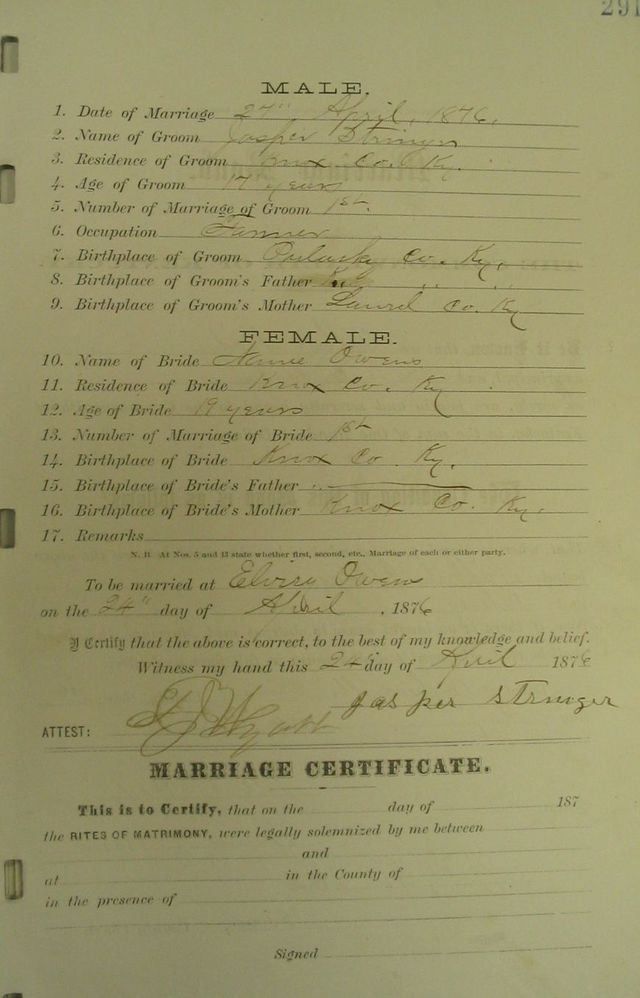 291
MALE.
1. Date of Marriage 27" April, 1876,
2. Name of Groom Jasper Stringer
3. Residence of Groom Knox Co. Ky.
4. Age of Groom 17 years
5. Number of Marriage of Groom 1st.
6. Occupation Farmer
7. Birthplace of Groom Pulaski Co. Ky.
8. Birthplace of Groom's Father " "
9. Birthplace of Groom's Mother Laurel Co. Ky
FEMALE.
10. Name of Bride Owens
11. Residence of Bride Knox Co. Ky
12. Age of Bride 19 years
13. Number of Marriage of Bride 1st
14. Birthplace of Bride Knox Co. Ky.
15. Birthplace of Bride's Father
16. Birthplace of Bride's Mother Knox Co. Ky.
17. Remarks
N. B. At Nos. 5 and 13 state whether first, second, etc., Marriage of each or either party.
To be married at Elvira Owens
on the 24" day of April, 1876
I Certify that the above is correct, to the best of my knowledge and belief.
Witness my hand this 24" day of April 1876
Jasper Stringer
ATTEST: Wyatt
MARRIAGE CERTIFICATE.
This is to Certify, that on the day of 187
the RITES OF MATRIMONY, were legally solemnized by me between
and
at in the County of
in the presence of
Signed